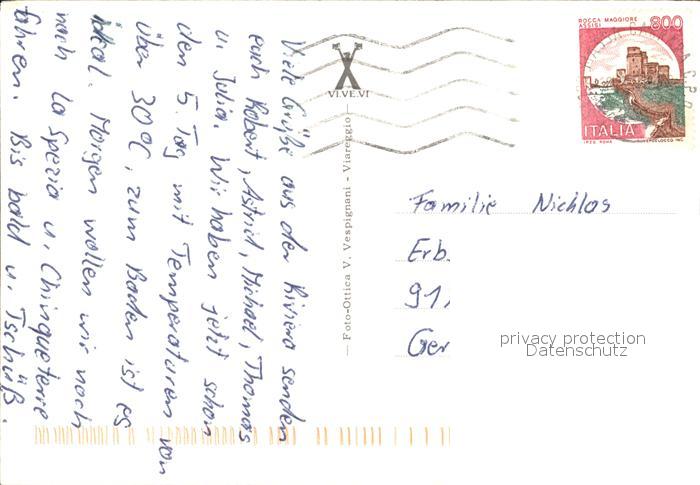 Viele Grüße aus der Riviera senden
euch Robert, Astrid, Michael, Thomas
u. Julia. Wir haben jetzt schon
den 5. Tag mit Temperaturen von
über 30°C, zum Baden ist es
ideal. Morgen wollen wir noch
nach La Spezia u. Chinqueterre
fahren. Bis bald u. Tschüß.
VI.VE.VI
Foto-Ottica V. Vespignani - Viareggio
ROCCA MAGGIORE
ASSISI
800
ITALIA
Familie Nichlas
Erb.
91,
Ger
privacy protection
Datenschutz